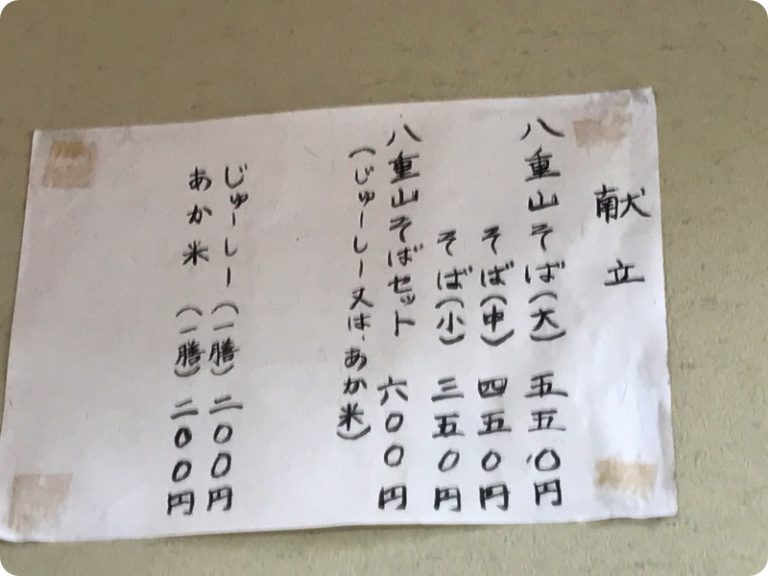 献立
八重山そば(大) 五五〇円
そば(中) 四五〇円
そば(小) 三五〇円
八重山そばセット 六〇〇円
(じゅーしー又は、あか米)
じゅーしー(一膳) 二〇〇円
あか米 (一膳) 二〇〇円